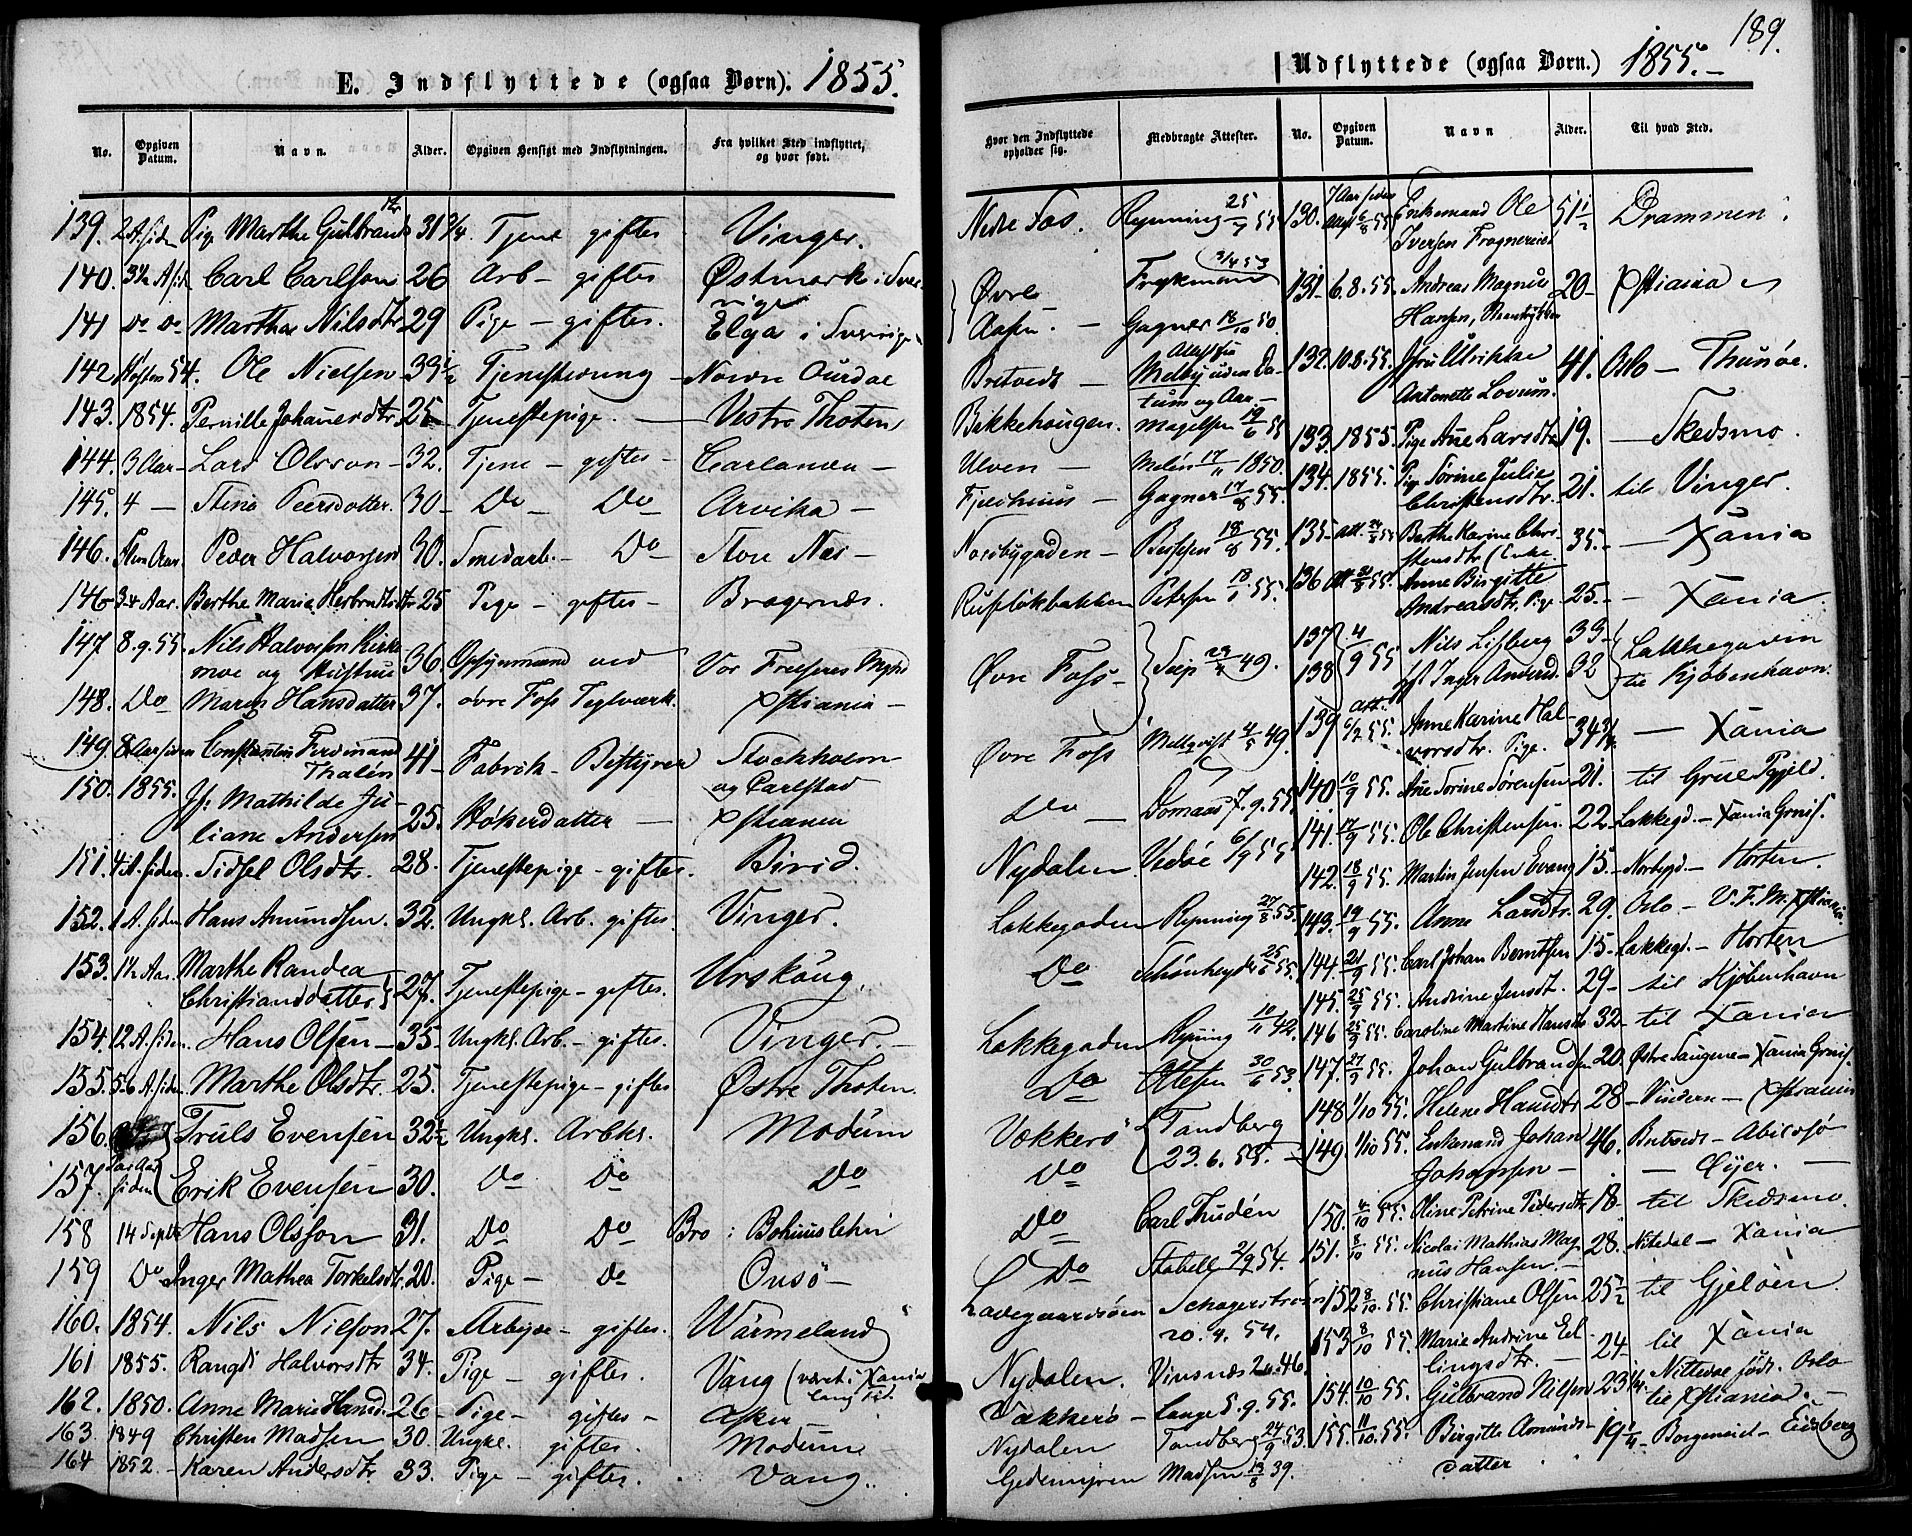 E. Indflyttede (ogsaa Børn). 1855.
No. Opgiven Datum. Navn. Alder. Opgiven Hensigt med Indflytningen. Fra hvilket Sted indflyttet, og hvor født.
139. 2 A. siden Pige Marthe Gulbrandsdtr 31 3/4 Tjene giftes Vinger.
140. Carl Carlson 26 Arb - giftes Østmark i Sverrige
141 Do Do Marthe Nilsdtr 29 Pige - giftes. Elga i Sverige
142 Høsten 54. Ole Nielsen 39 1/2 Tjeneste Nordre Ourdal
143. 1854. Pernille Johanesdtr 25 Tjenestepige. - Vestre Thoten
144. 3 Aar - Lars Olsson - 32. Tjene - giftes - Carlanda -
145. 4 - Stina Peersdotter. 30 - Do - Do - Arvika -
146. Peder Halvorsen 30. Smedarb. - Do Store Næs -
146 3-4 Aar. Berthe Marie Herbrandsdtr 25 Pige - giftes - Bragernæs.
147 8.9.55. Nils Halvorsen Kirkemoe og Hustrue 36 Opsynsmand ved Vor Frelsers Mghd
148. Do Maren Hansdatter 37. øvre Foss Teglværk. Xstiania -
149. 8 Aar siden Constantin Ferdinand Thalén 41 - Fabrik - Bestyrer Stockholm og Carlstad
150. 1855. Jf: Mathilde Juliane Andersen 25. Høkerdatter - Xstiania
151. 4 A. siden. Sidsel Olsdtr. 28. Tjenestepige - giftes. Birid.
152. 1 A. siden Hans Amundsen. 32. Ungkl. Arb. giftes. Vinger.
153. 1 1/2 Aar. Marthe Randea Christiansdatter 27. Tjenestepige - giftes. Urskoug.
154. 12 A. siden. Hans Olsen - 35. Ungkl. Arb. - giftes. Vinger. -
155. 5-6 A. siden Marthe Olsdtr. 25. Tjenestepige - giftes Østre Thoten.
156. Truls Evensen 32 1/2 Ungkl. Arbkl. Modum
157. siden Erik Evensen 30. Do Do Do
158 14 Septbr Hans Olsson 31. Do Do Bro i Bohuuslehn
159 Do Inger Mathea Torkelsdtr. 20. Pige - Do Onsø -
160. 1854. Nils Nilson 27. Arbejde - giftes. Wärmeland
161 1855. Rangdi Halvorsdtr 34. Pige - giftes. Vang (været i Xania lang Tid.
162. 1850. Anne Marie Hansd. 26 - Pige - giftes - Asker -
163. 1849 Christen Madsen 30. Ungkl. giftes. Modum
164 1852. - Karen Andersdtr. 33. Pige - giftes. Vang.
189.
Udflyttede (ogsaa Børn.) 1855. -
Hvor den Indflyttede opholder sig. Medbragte Attester. No. Opgiven Datum. Navn Alder. Til hvad Sted.
Nedre Fos. Rynning 25/7 55 130. 7 Aar siden Att 6/8 55 Enkemand Ole Iversen Frognereie 51 1/2 Drammen.
Øvre Aasen. - Frykman 3/4 53 131. 6.8.55. Andreas Magnus Hansen, 20 - Xstiania
Gagner 18/10 50
Bretvedt - Attest fra Melby uden Datum og Aar. - 132. 10.8.55. Jfru Ulrikke Antonette Lovum. 41. Oslo - Thunøe.
Bikkehougen. Magelsen 19/6 55 133. 1855. Pige Ane Larsdtr 19. - Skedsmo.
Ulven - Melén 17/11 1850. 134. 1855. Pige Sørine Julie Christensdtr. 21. til Vinger.
Fjeldhuus - Gagner 17/8 55.
Nordbygaden - Bessesen 18/8 55. 135 - att. 24/8 55 Berthe Karine Christensdtr (Enke 35. - Xania
Petersen 18/1 55. 136 att 31/8 55. Anne Birgitte Andreasdtr. Pige 25. - - Xania.
Øvre Foss - 23/4 49. 137 4/9 55 Nils Lisberg 33 - Lakkegaden
138 Inger Andersd. 32 til Kjøbenhavn.
Øvre Foss Mellqvist 4/5 49. 139 att. 6/2 55. Anne Karine Halvorsdtr. Pige. 34 3/4 - Xania
Do - Domaas 7.9.55. 140. 10/9 55. Ane Sorine Sørensen 21. til Grue Pgjeld.
Nydalen Vedøe 6/9 55 141. 17/9 55. Ole Christensen. 22 - Lakkegd. - Xania Grnis.
142. 18/9 55. Martin Jensen Evang 15. - Norbygd. - Horten.
Lakkegaden Rynning 27/8 55. 143. 19/9 55. Anne Larsdtr. 29. Oslo - V.F.M. Xstiania
Do Schønheyder 25/6 55. 144. 21/9 55. Carl Johan Berntsen 15 - Lakkegd. - Horten
145. 25/9 55. Andrine Jensdt. 29 - til Kjøbenhavn
Lakkegaden Rynning 10/11 42. 146 25/9 55. Caroline Martine Hansdtr 32 - til Xania
Do Ottesen 30/6 53. 147. 27/9 55. Johan Gulbrandsen 20. Østre Xania Grnis.
Vækkerø Tandberg 23.6.55. - 148 1/10 55. Helene Hansdtr 28 - Vindern - Xstiania
Do 149. 1/10 55. Enkemand Johan Johansen - 46. Bretvedt - Abildsø - Øyer. -
Do Carl Thudén 150. 4/10 55. Oline Petrine Pedersdtr 18. til Skedsmo.
Do Stabell 2/9 54. 151. 8/10 55. Nicolai Mathias Magnus Hansen. - 28. Nitedal - Xania
Ladegaardsøen Schagerstrøm 20.4.54. 152 8/10 55. Christiane Olsen 25 1/2 til Gjeløen.
153 8/10 55. Marie Andrine Erlingsdtr. - 24 - til Xania
Nydalen. Vinsnæs 46. 154. 10/10 55. Gulbrand Nilsen 23 1/4. Nittedal født. Oslo til Xstiania. -
Vækkerø - Lange 5.9.55.
Nydalen Tandberg 24/9 53. 155. 11/10 55. Birgitte Amundsdatter 19 3/4 - Borgeneied - Eidsberg
Gedemyren Madsen 13/8 39.